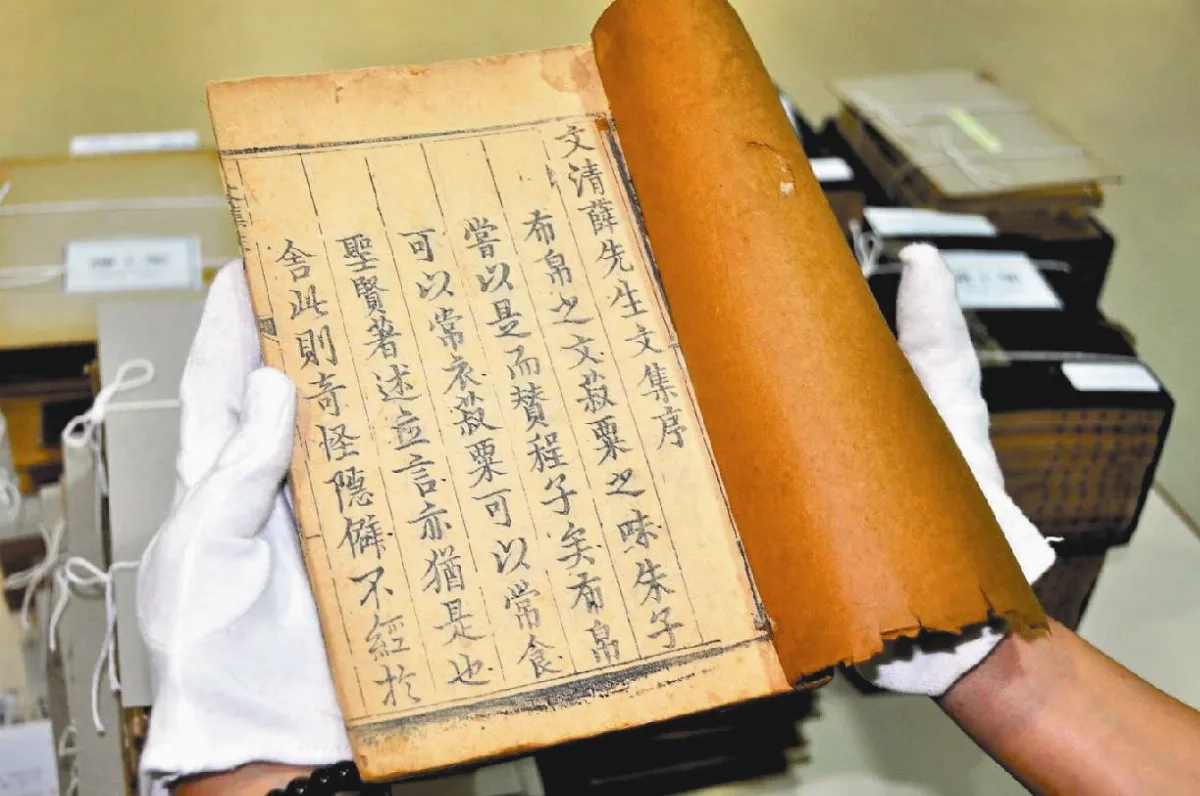 文清薛先生文集序
布帛之文菽粟之味朱子
嘗以是而賛程子矣布帛
可以常衣菽粟可以常食
聖賢著述立言亦猶是也
舍此則奇怪隐僻不經於